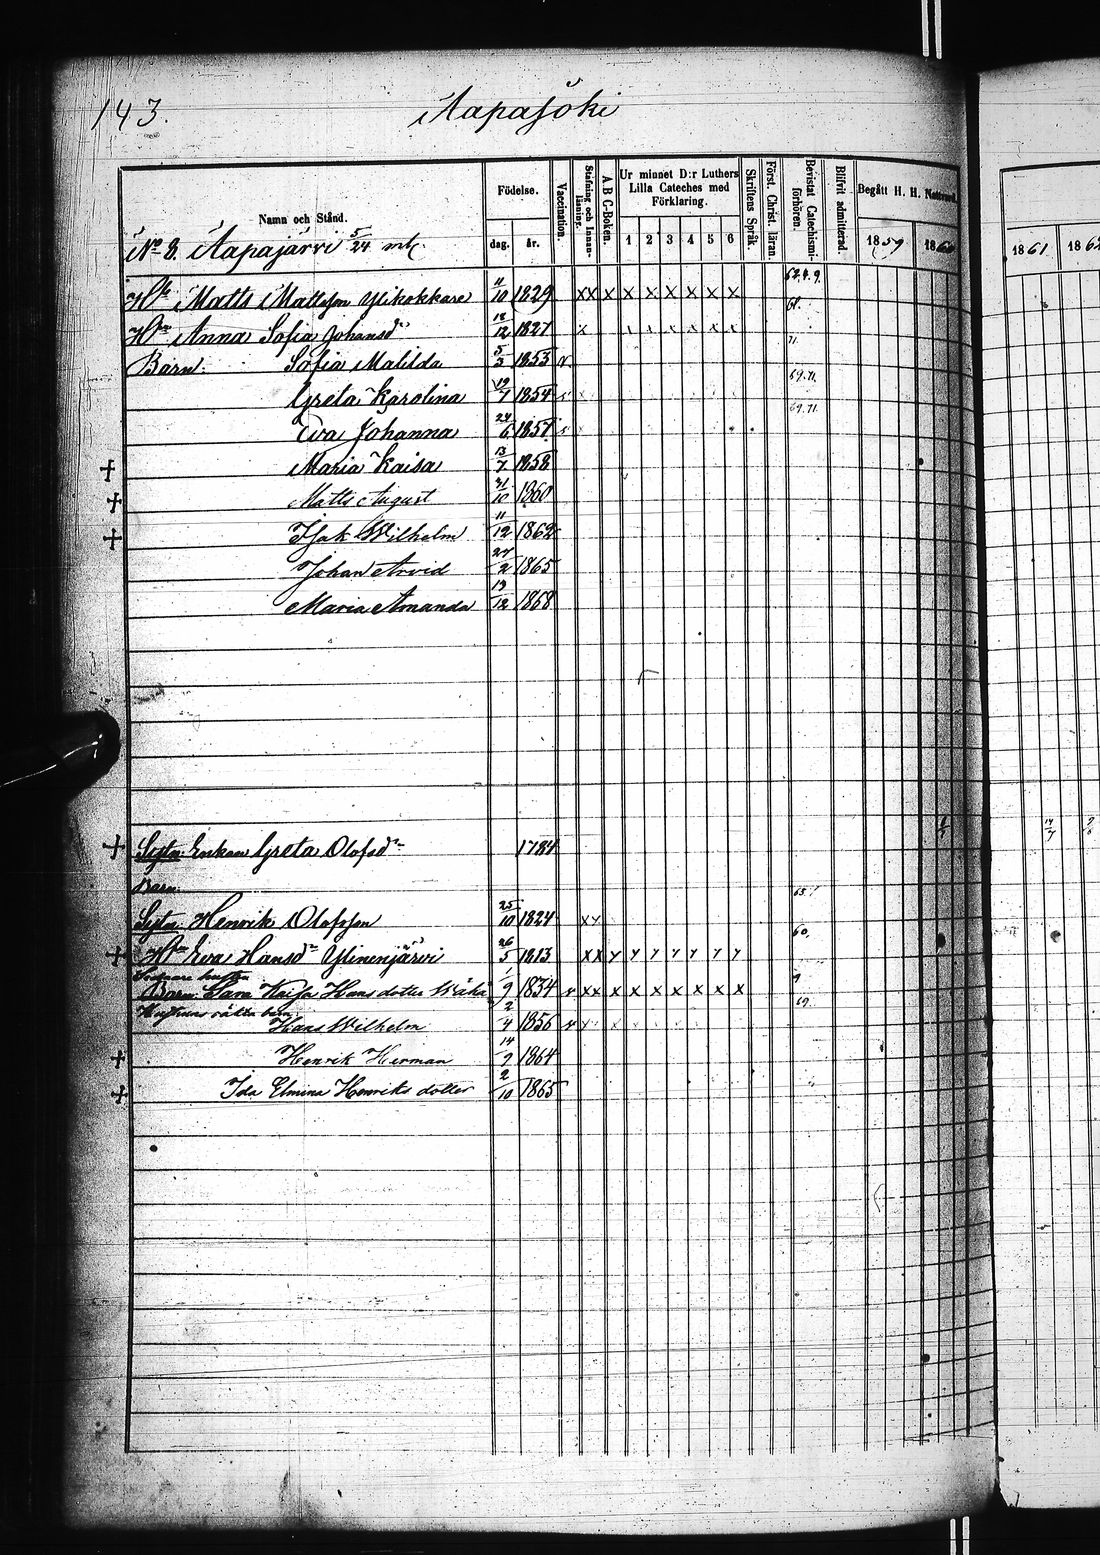 143.
Aapajoki
Namn och Stånd.
Födelse.
dag.
år.
Vaccination.
Stafning och Innanläsning.
A B C-Boken.
Ur minnet D:r Luthers Lilla Cateches med Förklaring.
1 2 3 4 5 6
Skriftens Språk.
Först. Christ. läran.
Bevistat Catechismiförhören.
Blifvit admitterad
Begått H. H. Nattvard.
1859 1860
1861 1862
No 8. Aapajärvi 5/24 mtl.
Matts Mattsson Ylikokkare 11/10 1829 xx x x x x x x x
Anna Sofia Johansdr 18/12 1827 x
Barn: Sofia Matilda 5/3 1853 v
Greta Karolina 19/7 1854 69.71.
Eva Johanna 24/6 1857 69.71.
+ Maria Kaisa 13/7 1858
+ Matts August 31/10 1860
+ Isak Wilhelm 11/12 1862
Johan Arvid 27/2 1865
Maria Amanda 13/12 1868
+ Enkan Greta Olofsdr 1784
Barn:
Henrik Olofsson 25/10 1824 xx
+ Hu Eva Hansdr Ylinenjärvi 26/5 1813 60.
Barn: Sara Kaisa Hansdotter 1/9 1834 v xx x x x x x x x
Hans Wilhelm 2/4 1856 69.
+ Henrik Herman 14/9 1864
+ Ida Elmina Henriksdotter 2/10 1865